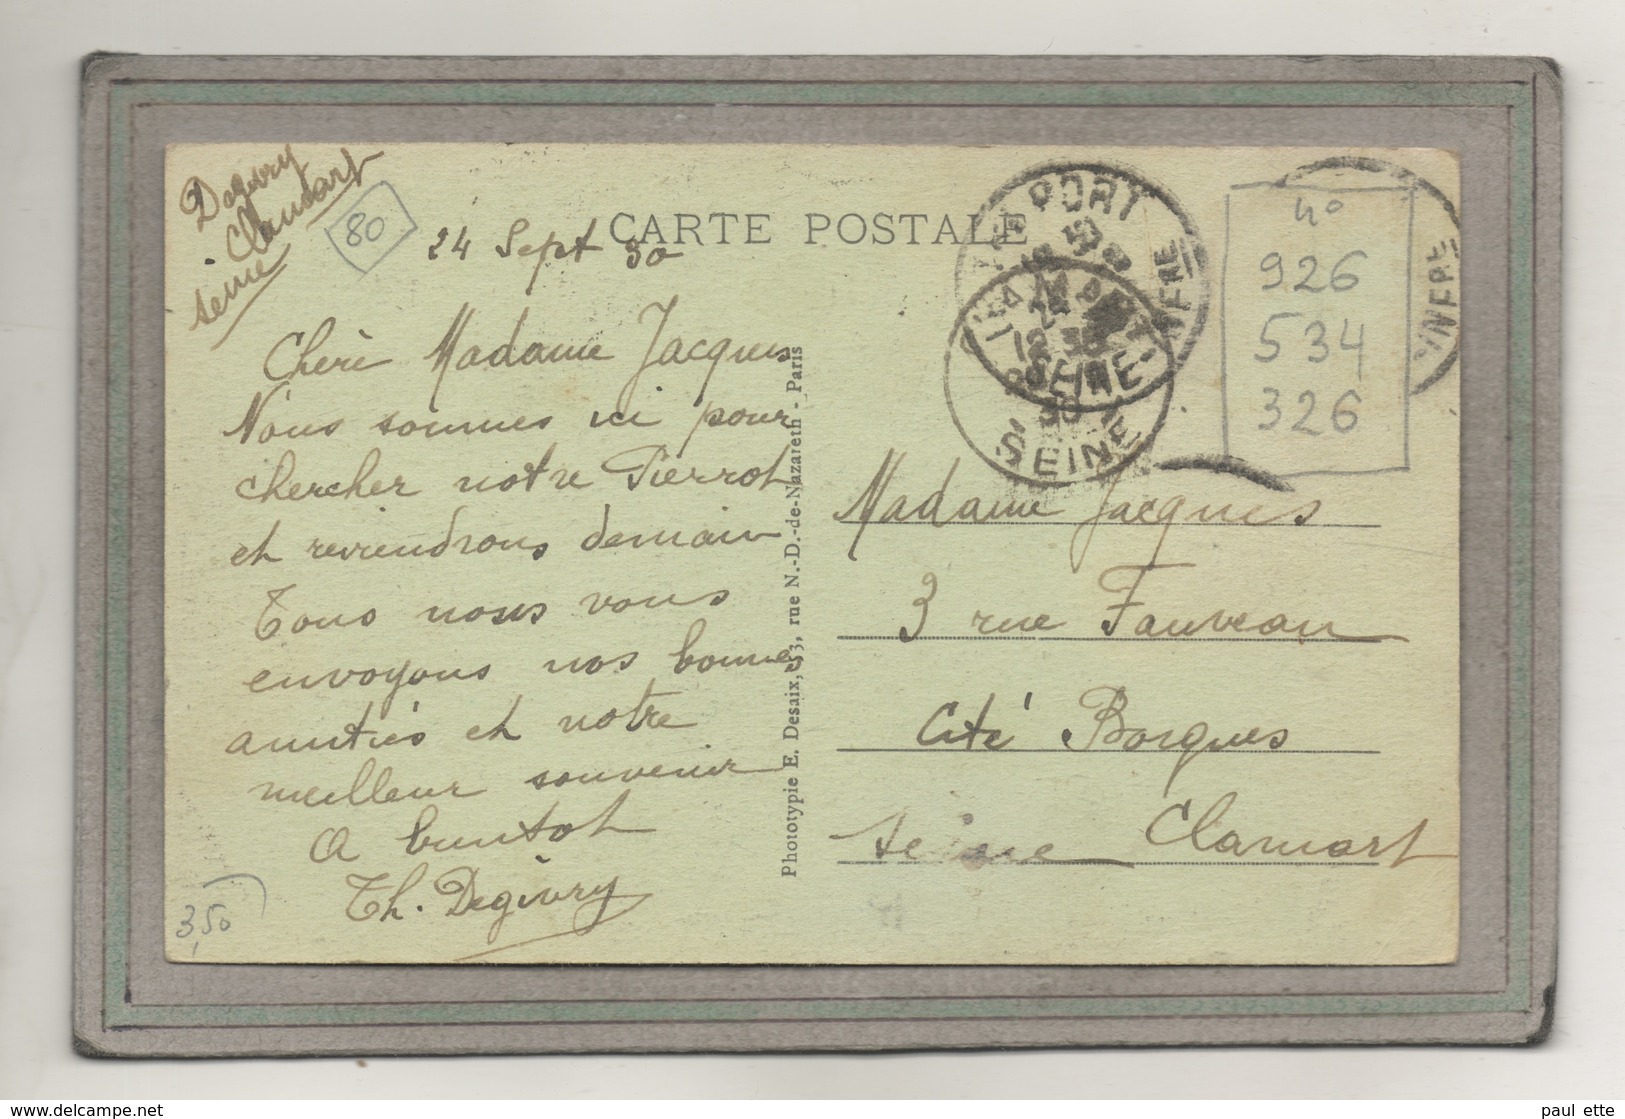 Degivry
Clamart
Seine
80
24 Sept 30
CARTE POSTALE
Cheri Madame Jacques
Nous sommes ici pour
chercher notre Pierrot
et reviendrons demain
Tous nous vous
envoyons nos bonne
amitiés et notre
meilleur souvenir
A bientot
Th. Degivry
3,50
Phototypie E. Desaix, 33, rue N.-D.-de-Nazareth - Paris
PORT
SEINE
SEINE
INFRE
INFRE
40
926
534
326
Madame Jacques
3 rue Fauveau
Cité Borgues
Clamart
Seine
paul ette